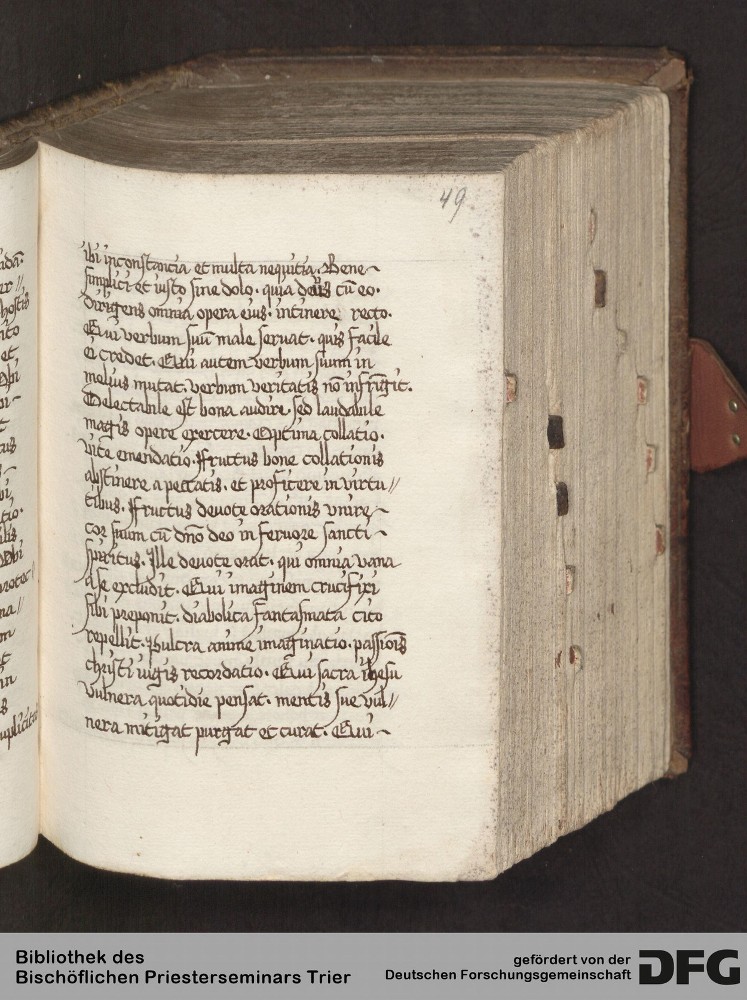 49
ibi inconstancia et multa nequitia. Bene~
simplici et iusto sine dolo. quia deus cū eo.
dirigens omnia opera eius. in itinere recto.
Qui verbum suū male seruat. quis facile
ei credet. Qui autem verbum suum in
melius mutat. verbum veritatis nō infrīgit.
Delectabile est bona audire. sed laudabile
magis opere exercere. Optima collatio.
vite emendatio. Fructus bone collationis
abstinere a peccatis. et proficere in virtu//
tibus. Fructus deuote orationis vnire~
cor suum cū dn̄o deo in feruore sancti~
spiritus. Ille deuote orat. qui omnia vana
a se excludit. Qui imaginem crucifixi
sibi preponit. diabolica fantasmata cito
repellit. Pulcra anime imaginatio. passiois̄
christi iugis recordatio. Qui sacra ihesu
vulnera quotidie pensat. mentis sue vul//
nera mitigat purgat et curat. Qui~
Bibliothek des
Bischöflichen Priesterseminars Trier
gefördert von der
Deutschen Forschungsgemeinschaft
DFG